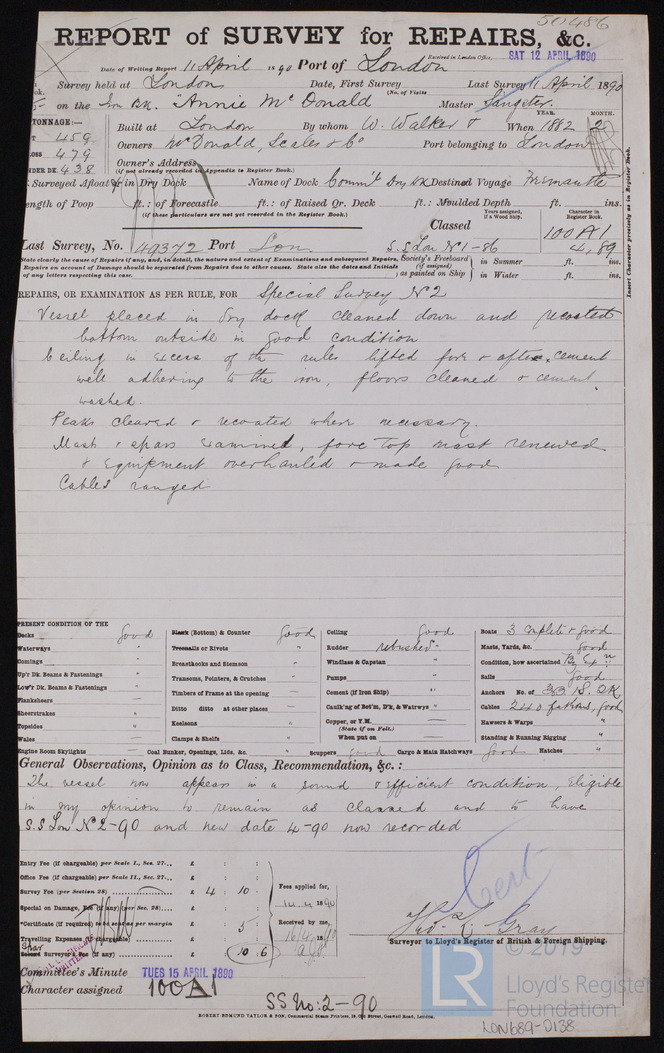 50486
REPORT of SURVEY for REPAIRS, &c.
Received in London Office, SAT 12 APRIL 1890
Date of Writing Report 11 April 1890 Port of London
Survey held at London Date, First Survey Last Survey 11 April 1890
(No. of Visits
on the Iron Bk. "Annie McDonald Master Sangster.
TONNAGE:— YEAR. MONTH.
459 Built at London By whom W. Walker & When 1882 2
479 Owners McDonald, Scales & Co Port belonging to London
UNDER DK. 438 Owner's Address
(if not already recorded in Appendix to Register Book.)
Surveyed Afloat or in Dry Dock Name of Dock Comm'l Dry Dk Destined Voyage Fremantle
Length of Poop ft.: of Forecastle ft.: of Raised Qr. Deck ft.: Moulded Depth ft. ins.
(if these particulars are not yet recorded in the Register Book.)
Classed Years assigned, if a Wood Ship. Character in Register Book.
100A1
Last Survey, No. 49372 Port Lon S.S Lon No 1-86 4,89
State clearly the cause of Repairs if any, and, in detail, the nature and extent of Examinations and subsequent Repairs.
Repairs on account of Damage should be separated from Repairs due to other causes. State also the dates and Initials
of any letters respecting this case.
Society's Freeboard (if assigned) as painted on Ship
in Summer ft. ins.
in Winter ft. ins.
Insert Character precisely as in Register Book.
REPAIRS, OR EXAMINATION AS PER RULE, FOR Special Survey No 2
Vessel placed in dry dock cleaned down and recoated
bottom outside in good condition
Ceiling in excess of the rules lifted fore & after, cement
well adhering to the iron, floors cleaned & cement
washed.
Peaks cleared & recoated where necessary.
Mast & spars examined, fore top mast renewed
& Equipment overhauled & made good
Cables ranged
PRESENT CONDITION OF THE
Decks good
Waterways "
Comings "
Up'r Dk. Beams & Fastenings "
Low'r Dk. Beams & Fastenings "
Planksheers
Sheerstrakes "
Topsides "
Wales "
Engine Room Skylights
Plank (Bottom) & Counter good
Treenails or Rivets "
Breasthooks and Stemson "
Transoms, Pointers, & Crutches "
Timbers of Frame at the opening
Ditto ditto at other places
Keelsons "
Clamps & Shelfs "
Coal Bunker, Openings, Lids, &c. "
Ceiling good
Rudder rebushed.
Windlass & Capstan "
Pumps "
Cement (if Iron Ship) "
Caulk'ng of Bot'm, D'k, & Watrwys "
Copper, or Y.M.
(State if on Felt.)
When put on
Scuppers good Cargo & Main Hatchways good Hatches "
Boats 3 Complete & good
Masts, Yards, &c. good
Condition, how ascertained By Exn
Sails good
Anchors No. of
Cables 240 fathoms, good
Hawsers & Warps "
Standing & Running Rigging "
General Observations, Opinion as to Class, Recommendation, &c.:
The vessel now appears in a sound & efficient condition, Eligible
in my opinion to remain as classed and to have
S.S Lon No 2-90 and new date 4-90 now recorded
Entry Fee (if chargeable) per Scale I., Sec. 27 £ : :
Office Fee (if chargeable) per Scale II., Sec. 27 £ : :
Survey Fee (per Section 28) £ 4 : 10 :
Special or Damage, Fee (if any) (per Sec. 28) £ : :
*Certificate (if required) to be sent as per margin 5 :
Travelling Expenses (if chargeable) £ : :
Second Surveyor's Fee (if any) £ 10.6
Fees applied for,
14.4 1890
Received by me,
16/4 1890
Cert
Tho. K. Gray
Surveyor to Lloyd's Register of British & Foreign Shipping.
Committee's Minute TUES 15 APRIL 1890
Character assigned 100A1
SS No: 2-90
ROBERT EDMUND TAYLOR & SON, Commercial Steam Printers, 19, Old Street, Goswell Road, London.
© 2019
LR
Lloyd's Register
Foundation
LON689-0138